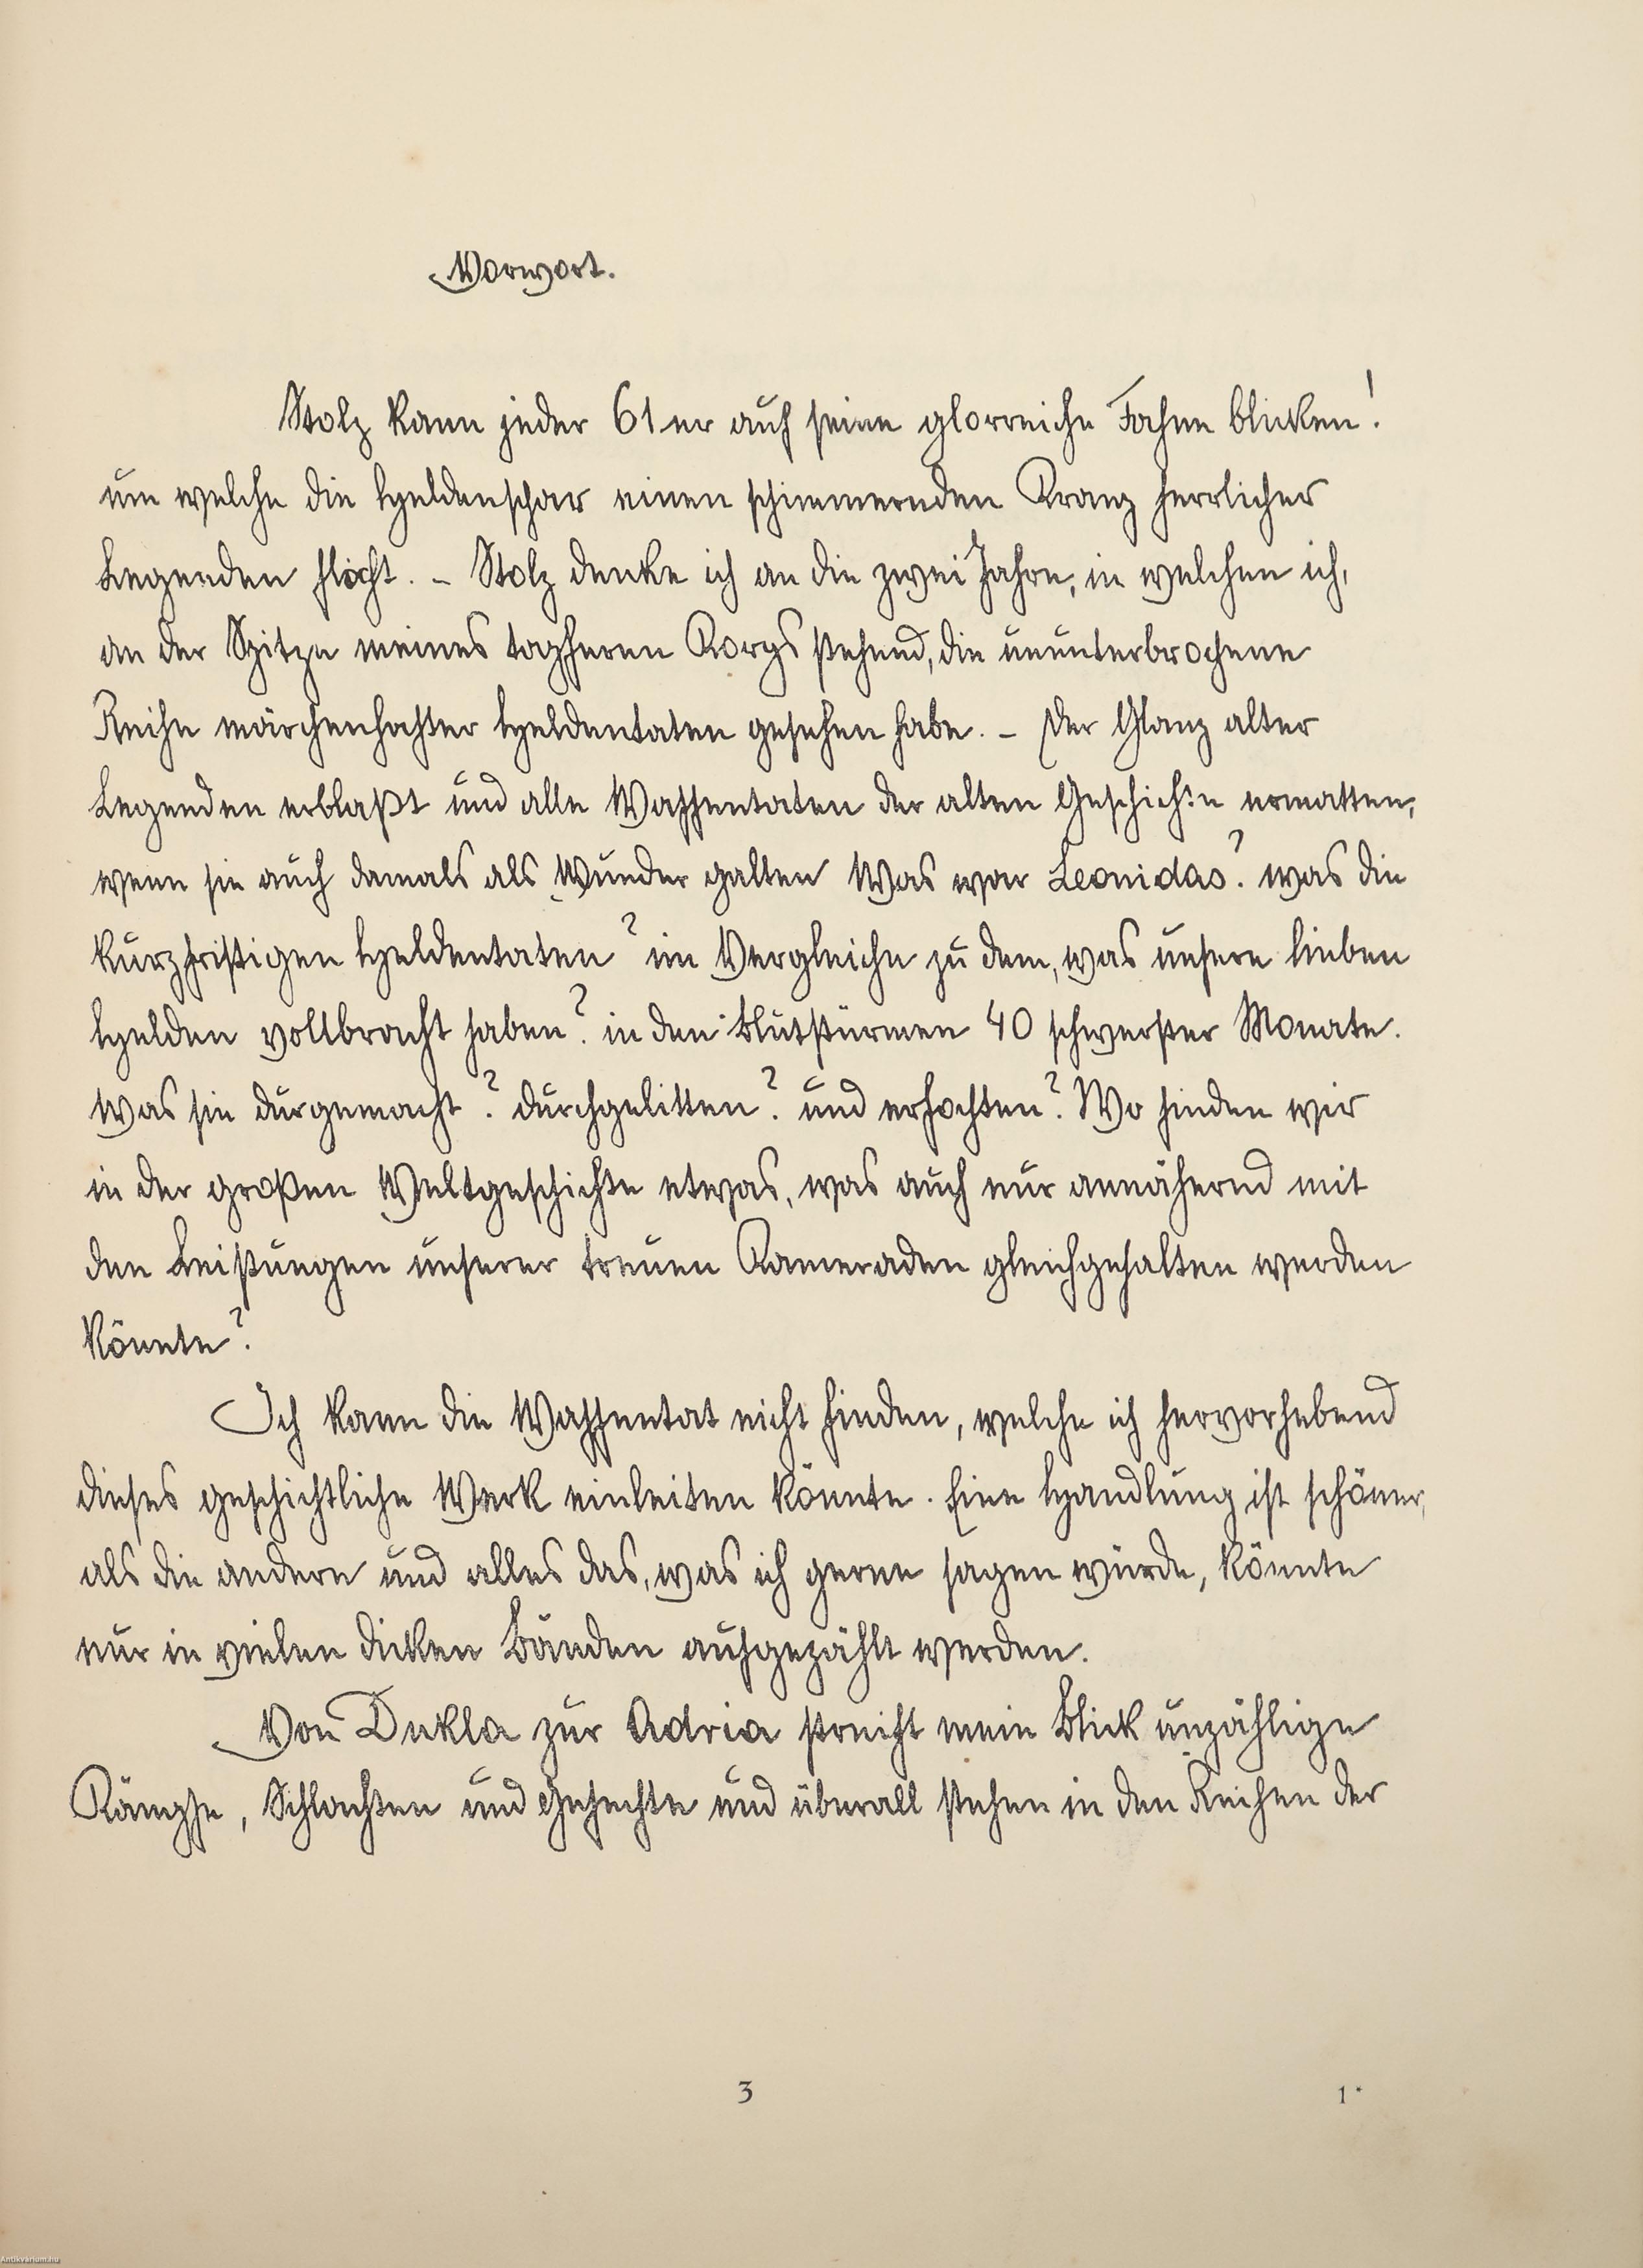 Vorwort.
Stolz kann jeder 61er auf seine glorreiche Fahne blicken!
um welche die Heldenschar einen schimmernden Kranz herrlicher
Legenden flicht. – Stolz denke ich an die zwei Jahre, in welchen ich,
an der Spitze meines tapferen Korps stehend, die ununterbrochene
Reihe märchenhafter Heldentaten gesehen habe. – Der Glanz alter
Legenden erblaßt und alle Waffentaten der alten Geschichte ermatten,
wenn sie auch damals als Wunder galten Was war Leonidas? was die
kurzfristigen Heldentaten? im Vergleiche zu dem, was unsere lieben
Helden vollbracht haben? in den Blutstürmen 40 schwerster Monate.
Was sie durgemacht? durchgelitten? und erfochten? Wo finden wir
in der großen Weltgeschichte etwas, was auch nur annähernd mit
den Leistungen unserer treuen Kameraden gleichgehalten werden
könnte?
Ich kann die Waffentat nicht finden, welche ich hervorhebend
dieses geschichtliche Werk einleiten könnte. Eine Handlung ist schöner,
als die andere und alles das, was ich gerne sagen würde, könnte
nur in vielen dicken Bänden aufgezählt werden.
Von Dukla zur Adria streift mein Blick unzählige
Kämpfe, Schlachten und Gefechte und überall stehen in den Reihen der
3 1*
Antikvárium.hu